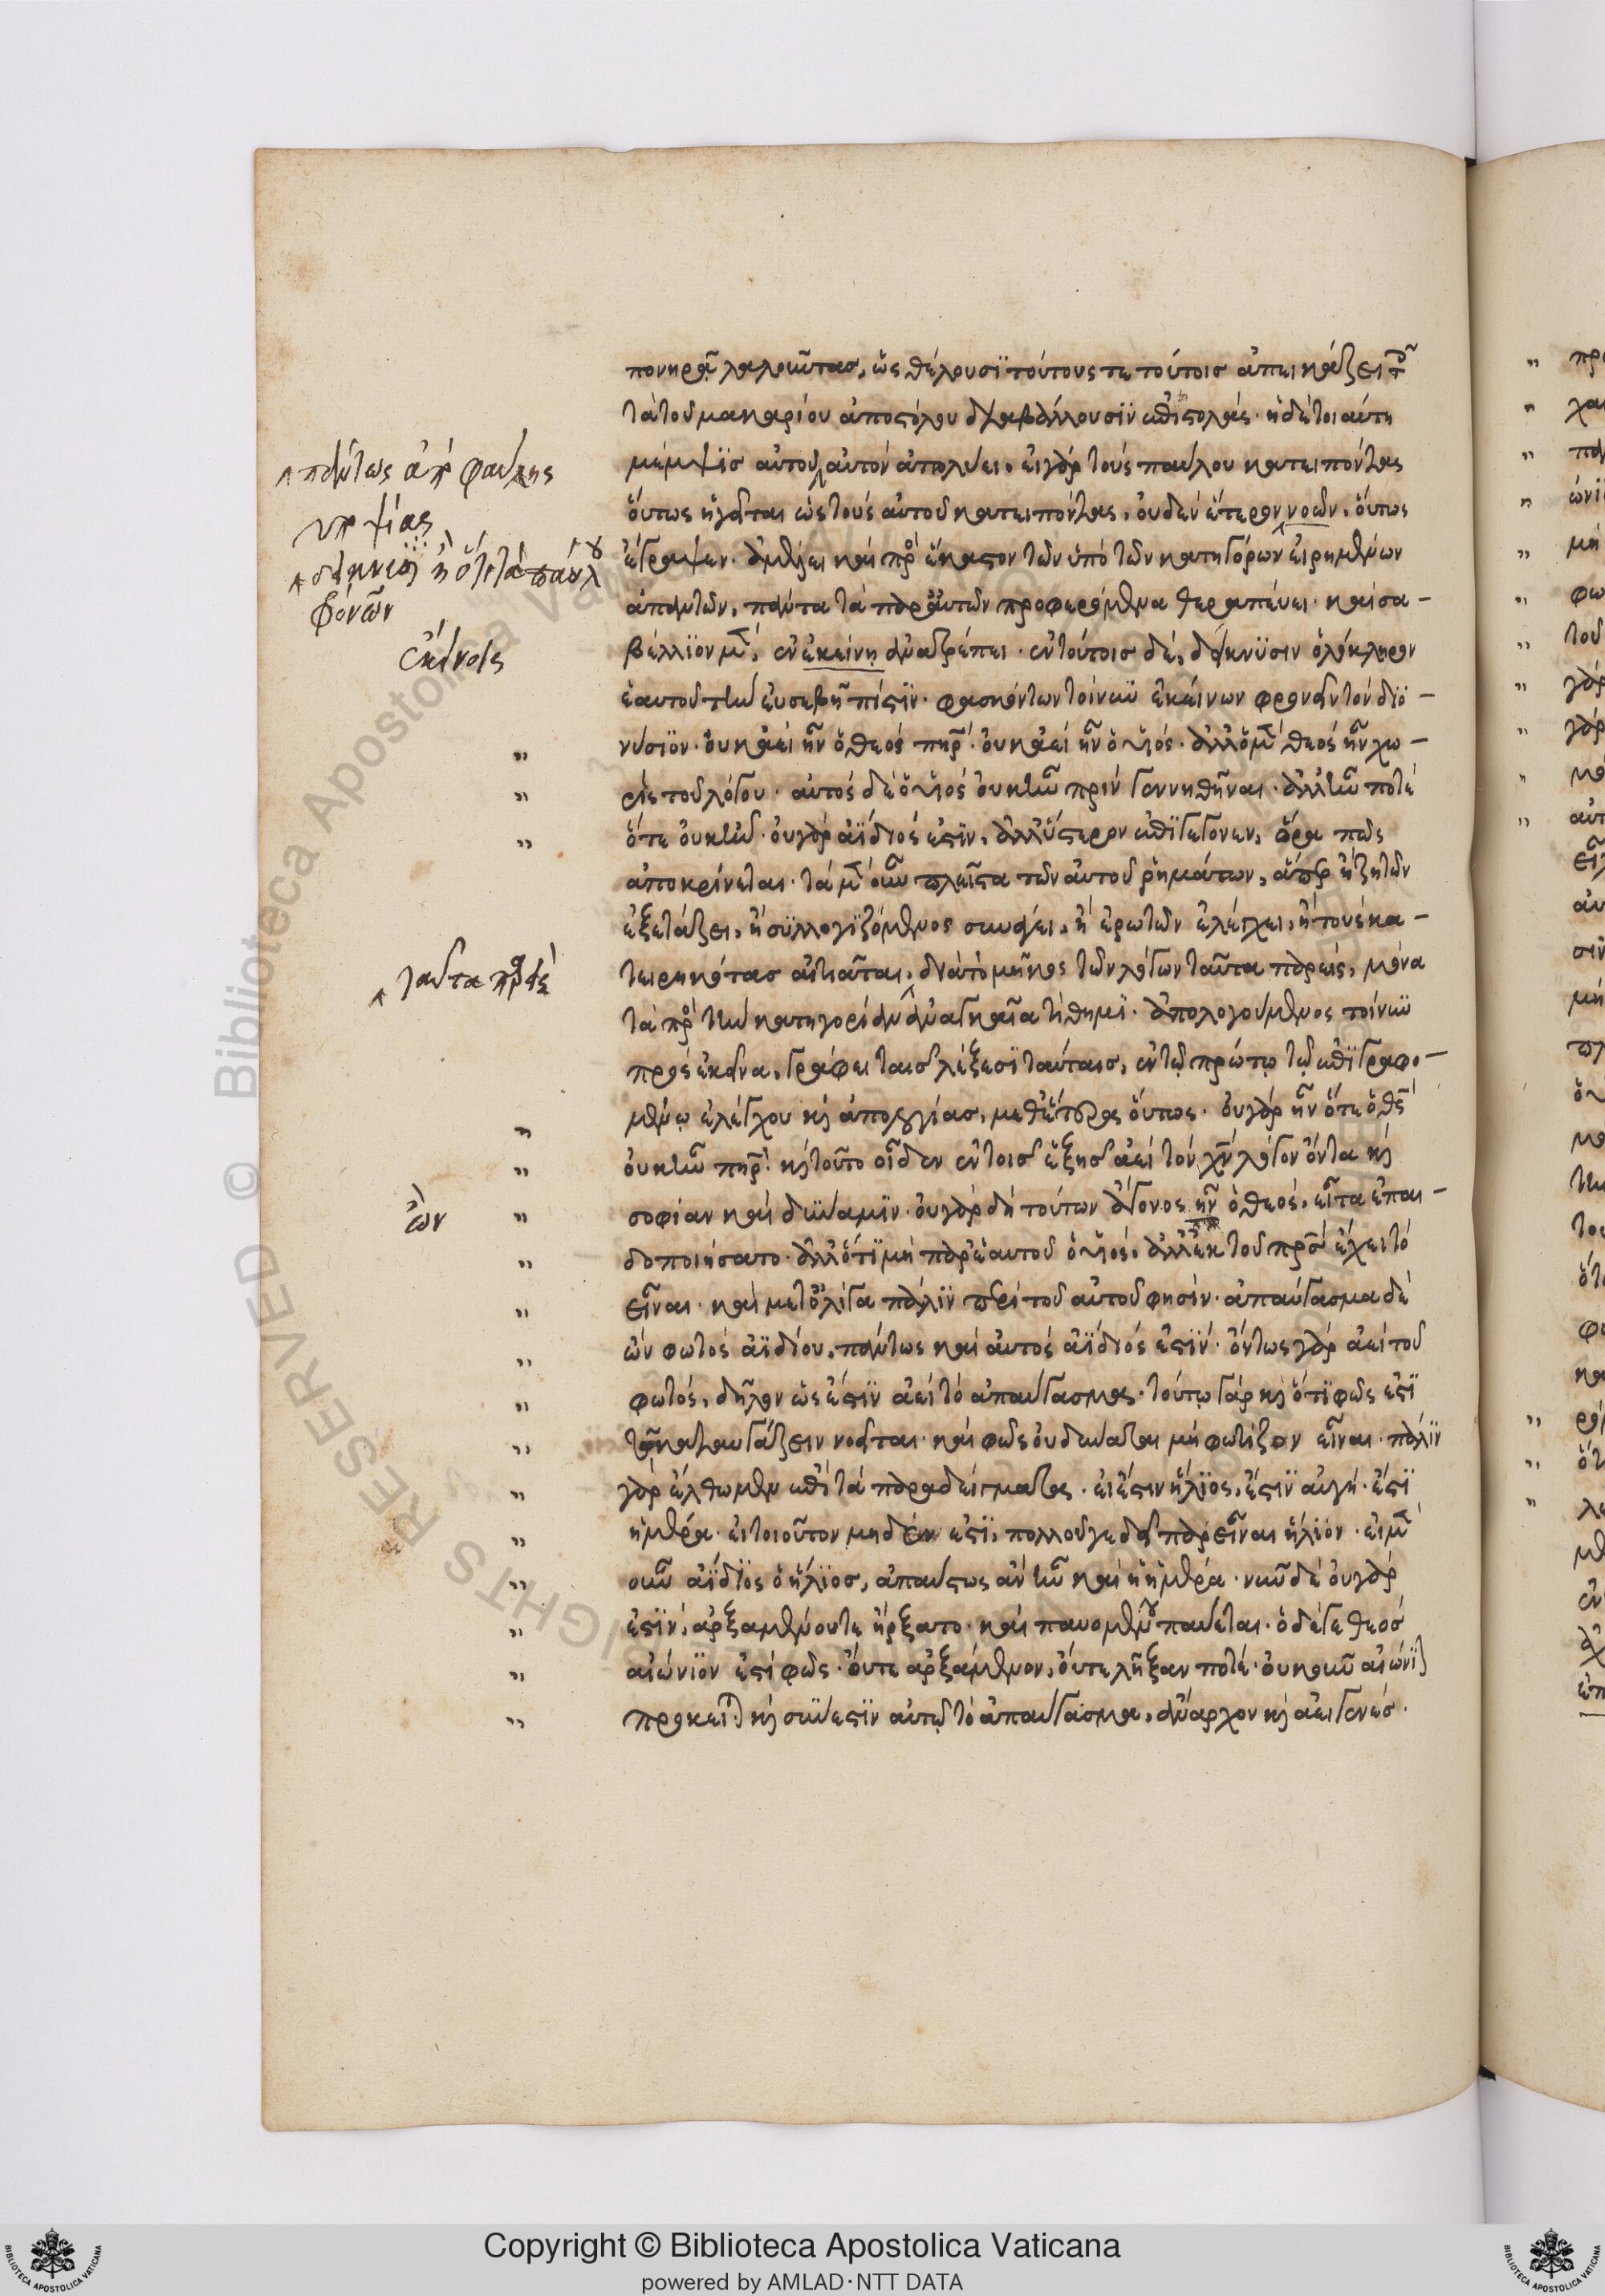 πονηρὰ λαλοῦντας, ὡς θέλουσϊ τούτους τε τούτοις ἀπεικάζειν
τὰ τοῦ μακαρίου ἀποστόλου διαβάλλουσϊν ἐπϊστολάς· ἡ δὲ τοιαύτη
μέμψϊς αὐτοὺς αὐτὸν ἀπολύει. εἰ γὰρ τοὺς παύλου κατειπόντας
οὕτως ἡγεῖται ὡς τοὺς αὐτοῦ κατειπόντας, οὐδὲν ἕτερον νοῶν, οὕτως
ἔγραψεν· ἀμέλει καὶ πρὸς ἕκαστον τῶν ὑπὸ τῶν κατηγόρων εἰρημένων
ἀπαντῶν, πάντα τὰ παρ' αὐτῶν προφερόμενα θεραπεύει· καὶ σα-
βέλλϊον μὲν, ἐν ἐκείνη ἀνατρέπει· ἐν τούτοις δὲ, δείκνϋσιν ὁλόκληρον
ἑαυτοῦ τὴν εὐσεβῆ πίστϊν· φασκόντων τοίνυν ἐκείνων φρονεῖν τὸν δϊο-
νύσϊον· οὐκ ἀεὶ ἦν ὁ θεὸς πηρ· οὐκ ἀεὶ ἦν ὁ υἱός· ἀλλ' ὁ μὲν θεὸς ἦν χω-
ρὶς τοῦ λόγου· αὐτὸς δὲ ὁ υἱὸς οὐκ ἦν πρὶν γεννηθῆναι· ἀλλ' ἦν ποτὲ
ὅτε οὐκ ἦν· οὐ γὰρ ἀΐδιός ἐστϊν, ἀλλ' ὕστερον ἐπϊγέγονεν, ὅρα πῶς
ἀποκρίνεται· τὰ μὲν οὖν πλεῖστα τῶν αὐτοῦ ῥημάτων, ἅπερ ἢ ζητῶν
ἐξετάζει, ἢ σϋλλογϊζόμενος συνάγει, ἢ ἐρωτῶν ἐλέγχει, ἢ τοὺς κα-
τειρηκότας αἰτιᾶται, διὰ τὸ μῆκος τῶν λόγων ταῦτα παρεὶς, μόνα
τὰ πρὸς τὴν κατηγορίαν ἀναγκαῖα τίθημϊ· ἀπολογούμενος τοίνυν
πρὸς ἐκεῖνα, γράφει ταῖς λέξεσϊ ταύταις, ἐν τῷ πρώτῳ τῷ ἐπϊγραφο-
μένῳ ἐλέγχου κὶ ἀπολογίας, μεθ' ἕτερα οὕτως· οὐ γὰρ ἦν ὅτε ὁ θς
οὐκ ἦν πηρ· κὶ τοῦτο οἶδεν ἐν τοῖς ἑξῆς ἀεὶ τὸν χν λόγον ὄντα κὶ
σοφίαν καὶ δύναμϊν· οὐ γὰρ δὴ τούτων ἄγονος ἦν ὁ θεὸς, εἶτα ἐπαι-
δοποιήσατο· ἀλλ' ὅτϊ μὴ παρ' ἑαυτοῦ ὁ υἱὸς, ἀλλ' ἐκ τοῦ πρς ἔχει τὸ
εἶναι· καὶ μετ' ὀλίγα πάλϊν περὶ τοῦ αὐτοῦ φησίν· ἀπαύγασμα δὲ
ὢν φωτὸς ἀϊδίου, πάντως καὶ αὐτὸς ἀΐδιός ἐστϊν· ὄντως γὰρ ἀεὶ τοῦ
φωτὸς, δῆλον ὡς ἔστϊν ἀεὶ τὸ ἀπαύγασμα· τούτῳ γάρ κὶ ὅτϊ φῶς ἐστϊ
τῷ καταυγάζειν νοεῖται· καὶ φῶς οὐ δύναται μὴ φωτίζον εἶναι· πάλϊν
γὰρ ἔλθωμεν ἐπὶ τὰ παραδείγματα· εἰ ἔστιν ἥλϊος, ἔστϊν αὐγή· ἔστϊ
ἡμέρα· εἰ τοιοῦτον μηδέν ἐστϊ, πολλοῦ γε δεῖ παρεῖναι ἥλϊον· εἰ μὲν
οὖν ἀΐδϊος ὁ ἥλϊος, ἄπαυστος ἂν ἦν καὶ ἡ ἡμέρα· νῦν δὲ οὐ γάρ
ἐστϊν, ἀρξαμένου τε ἤρξατο· καὶ παυομένου παύεται· ὁ δέ γε θεὸς
αἰώνϊον ἐστὶ φῶς· οὔτε ἀρξάμενον, οὔτε λῆξαν ποτέ· οὐκοῦν αἰώνϊον
πρόκειται κὶ σύνεστϊν αὐτῷ τὸ ἀπαύγασμα, ἄναρχον κὶ ἀειγενές·
ἐκείνοις
ταῦτα
ὢν
Copyright © Biblioteca Apostolica Vaticana
powered by AMLAD·NTT DATA